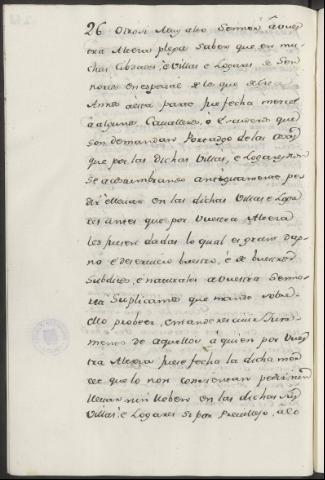 26 Otrosi Muy alto Sennor á vues
tra Alteza plega saber que en mu
chas Cibdades è Villas e Logares de Sen
norios en especial de lo que de diez
Annos acá para fue fecha merced
à algunos Cavalleros, o Escuderos que
son demandan Portadgo de las cosas
que por las dichas Villas, e Logares non
se acostumbrando antiguamente pe
dir è llevar en las dichas Villas e Loga
res antes que por Vuestra Alteza
les fuesen dadas lo qual es grant dap
no è deservicio vuestro, è de vuestros
Subditos, è naturales a vuestra Senno
ria Suplicamos que mande sobre
ello probeer, e mande rescivir Jura
mento de aquellos à quien por vues
tra Alteza fuese fecha la dicha mer
ced, que lo non consientan pedir nin
llevar nin Robar en las dichas sus
Villas è Logares si por Previllejo, a lo